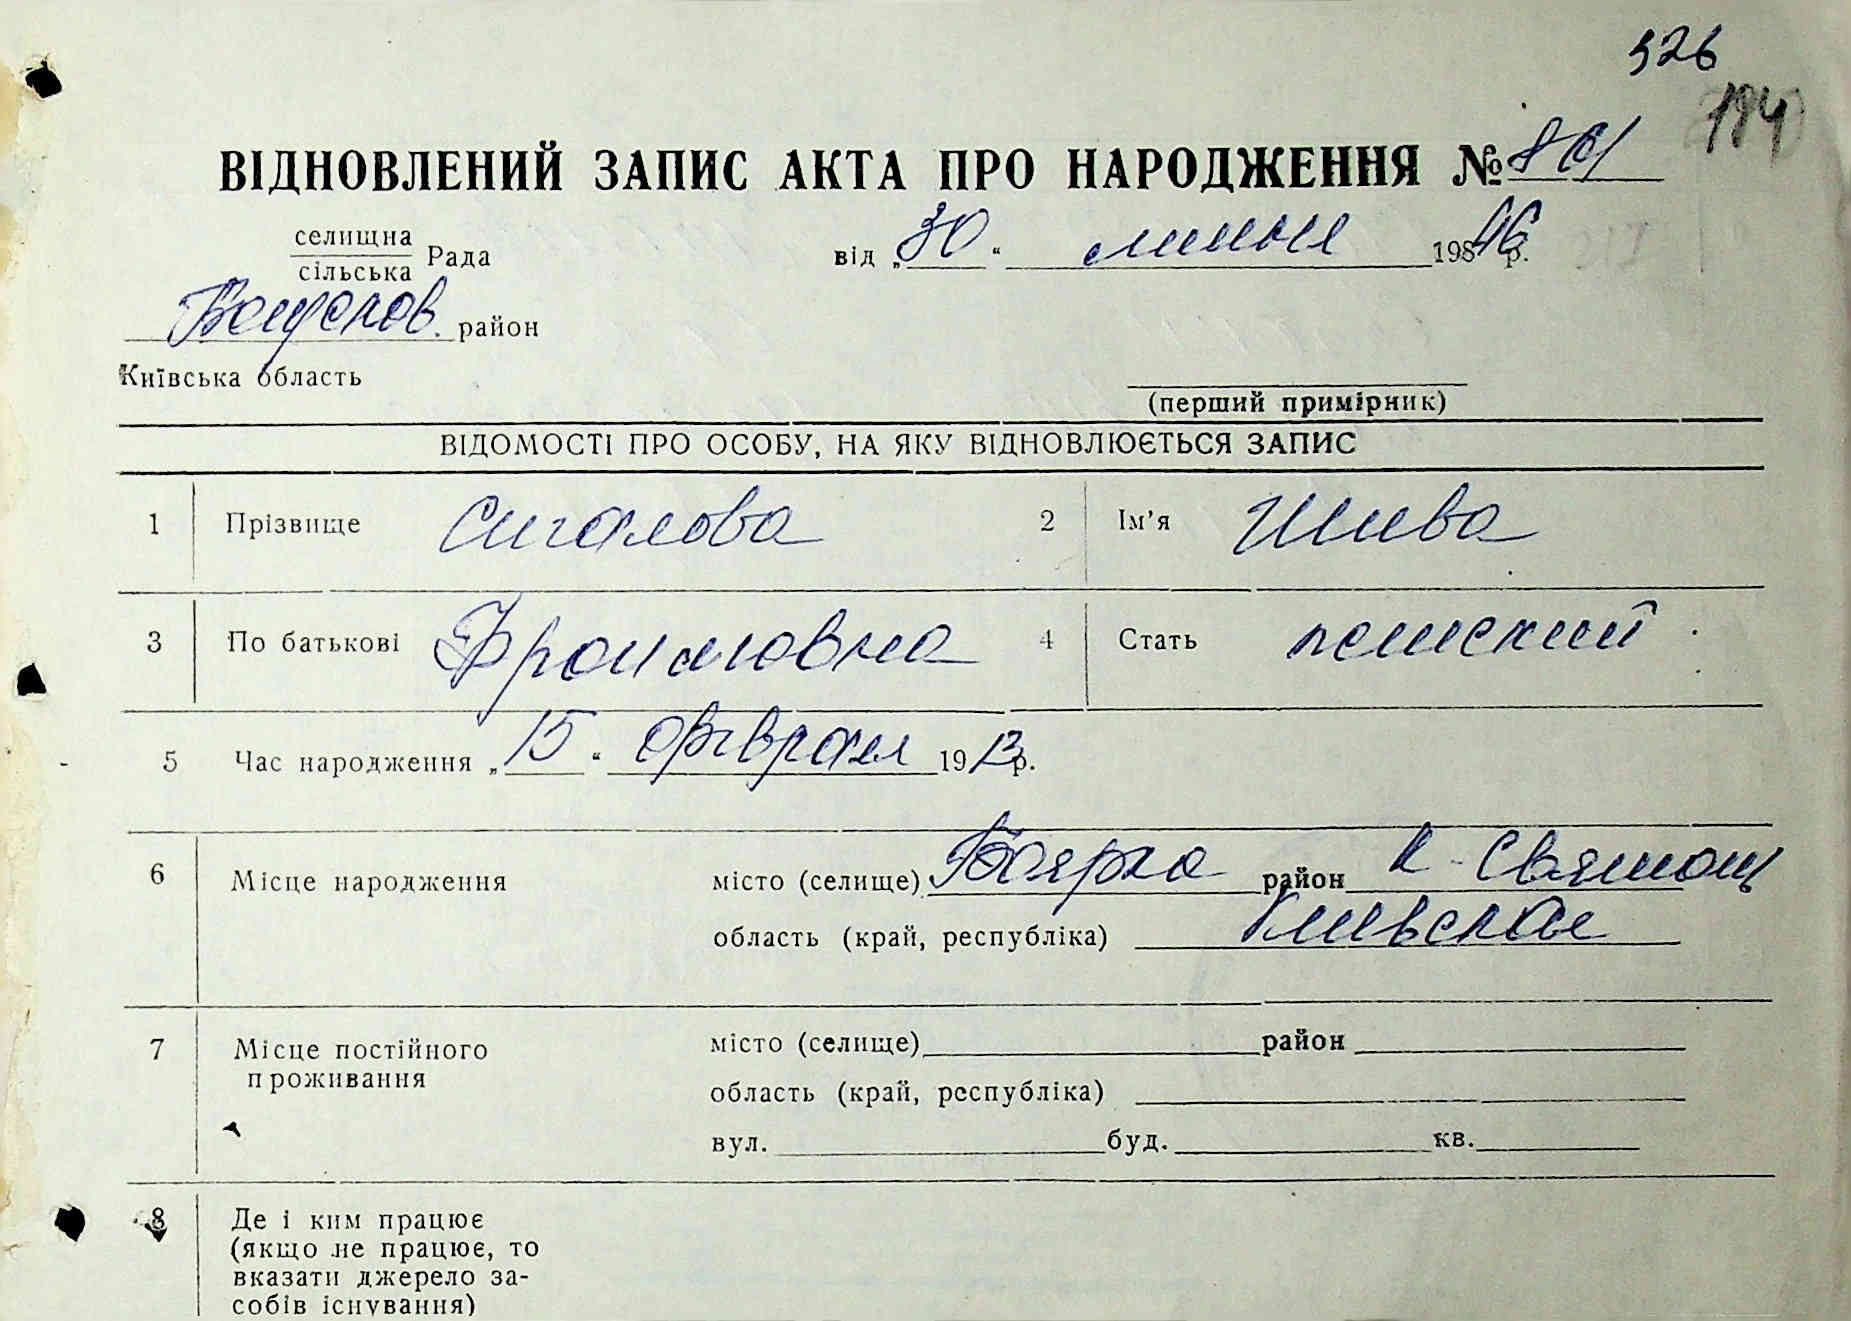 326
194
ВІДНОВЛЕНИЙ ЗАПИС АКТА ПРО НАРОДЖЕННЯ № 801
селищна
сільська Рада
від „30“ 1946 р.
район
Київська область
(перший примірник)
ВІДОМОСТІ ПРО ОСОБУ, НА ЯКУ ВІДНОВЛЮЄТЬСЯ ЗАПИС
1 Прізвище Сигалова 2 Ім'я Шива
3 По батькові Фроимовна 4 Стать женский
5 Час народження „15“ февраля 1913 р.
6 Місце народження місто (селище) Боярка район К-Святош
область (край, республіка) Киевская
7 Місце постійного проживання місто (селище) район
область (край, республіка)
вул. буд. кв.
8 Де і ким працює
(якщо не працює, то
вказати джерело за-
собів існування)